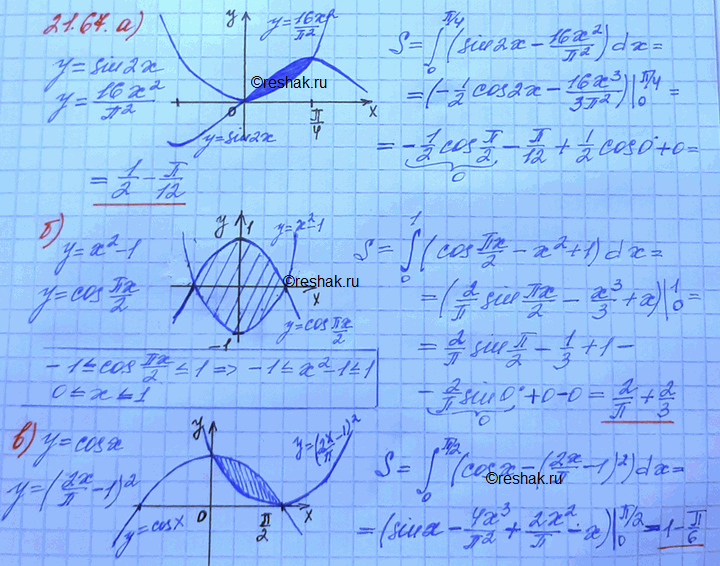 21.67. а)
y = sin2x
y = 16x²/π²
y
y = 16x²/π²
©reshak.ru
0
π/4
x
y = sin2x
S = ∫₀^(π/4) (sin2x − 16x²/π²) dx =
= (−1/2 cos2x − 16x³/3π²)|₀^(π/4) =
= −1/2 cos π/2 − π/12 + 1/2 cos0 + 0 =
0
= 1/2 − π/12
б)
y = x² − 1
y = cos πx/2
y
1
y = x² − 1
©reshak.ru
x
y = cos πx/2
−1
−1 ≤ cos πx/2 ≤ 1 ⇒ −1 ≤ x² − 1 ≤ 1
0 ≤ x ≤ 1
S = ∫₀¹ (cos πx/2 − x² + 1) dx =
= (2/π sin πx/2 − x³/3 + x)|₀¹ =
= 2/π sin π/2 − 1/3 + 1 −
− 2/π sin0 + 0 − 0 = 2/π + 2/3
0
в)
y = cosx
y = (2x/π − 1)²
y
y = (2x/π − 1)²
y = cosx
0
π/2
x
S = ∫₀^(π/2) (cosx − (2x/π − 1)²) dx =
©reshak.ru
= (sinx − 4x³/π² + 2x²/π − x)|₀^(π/2) = 1 − π/6